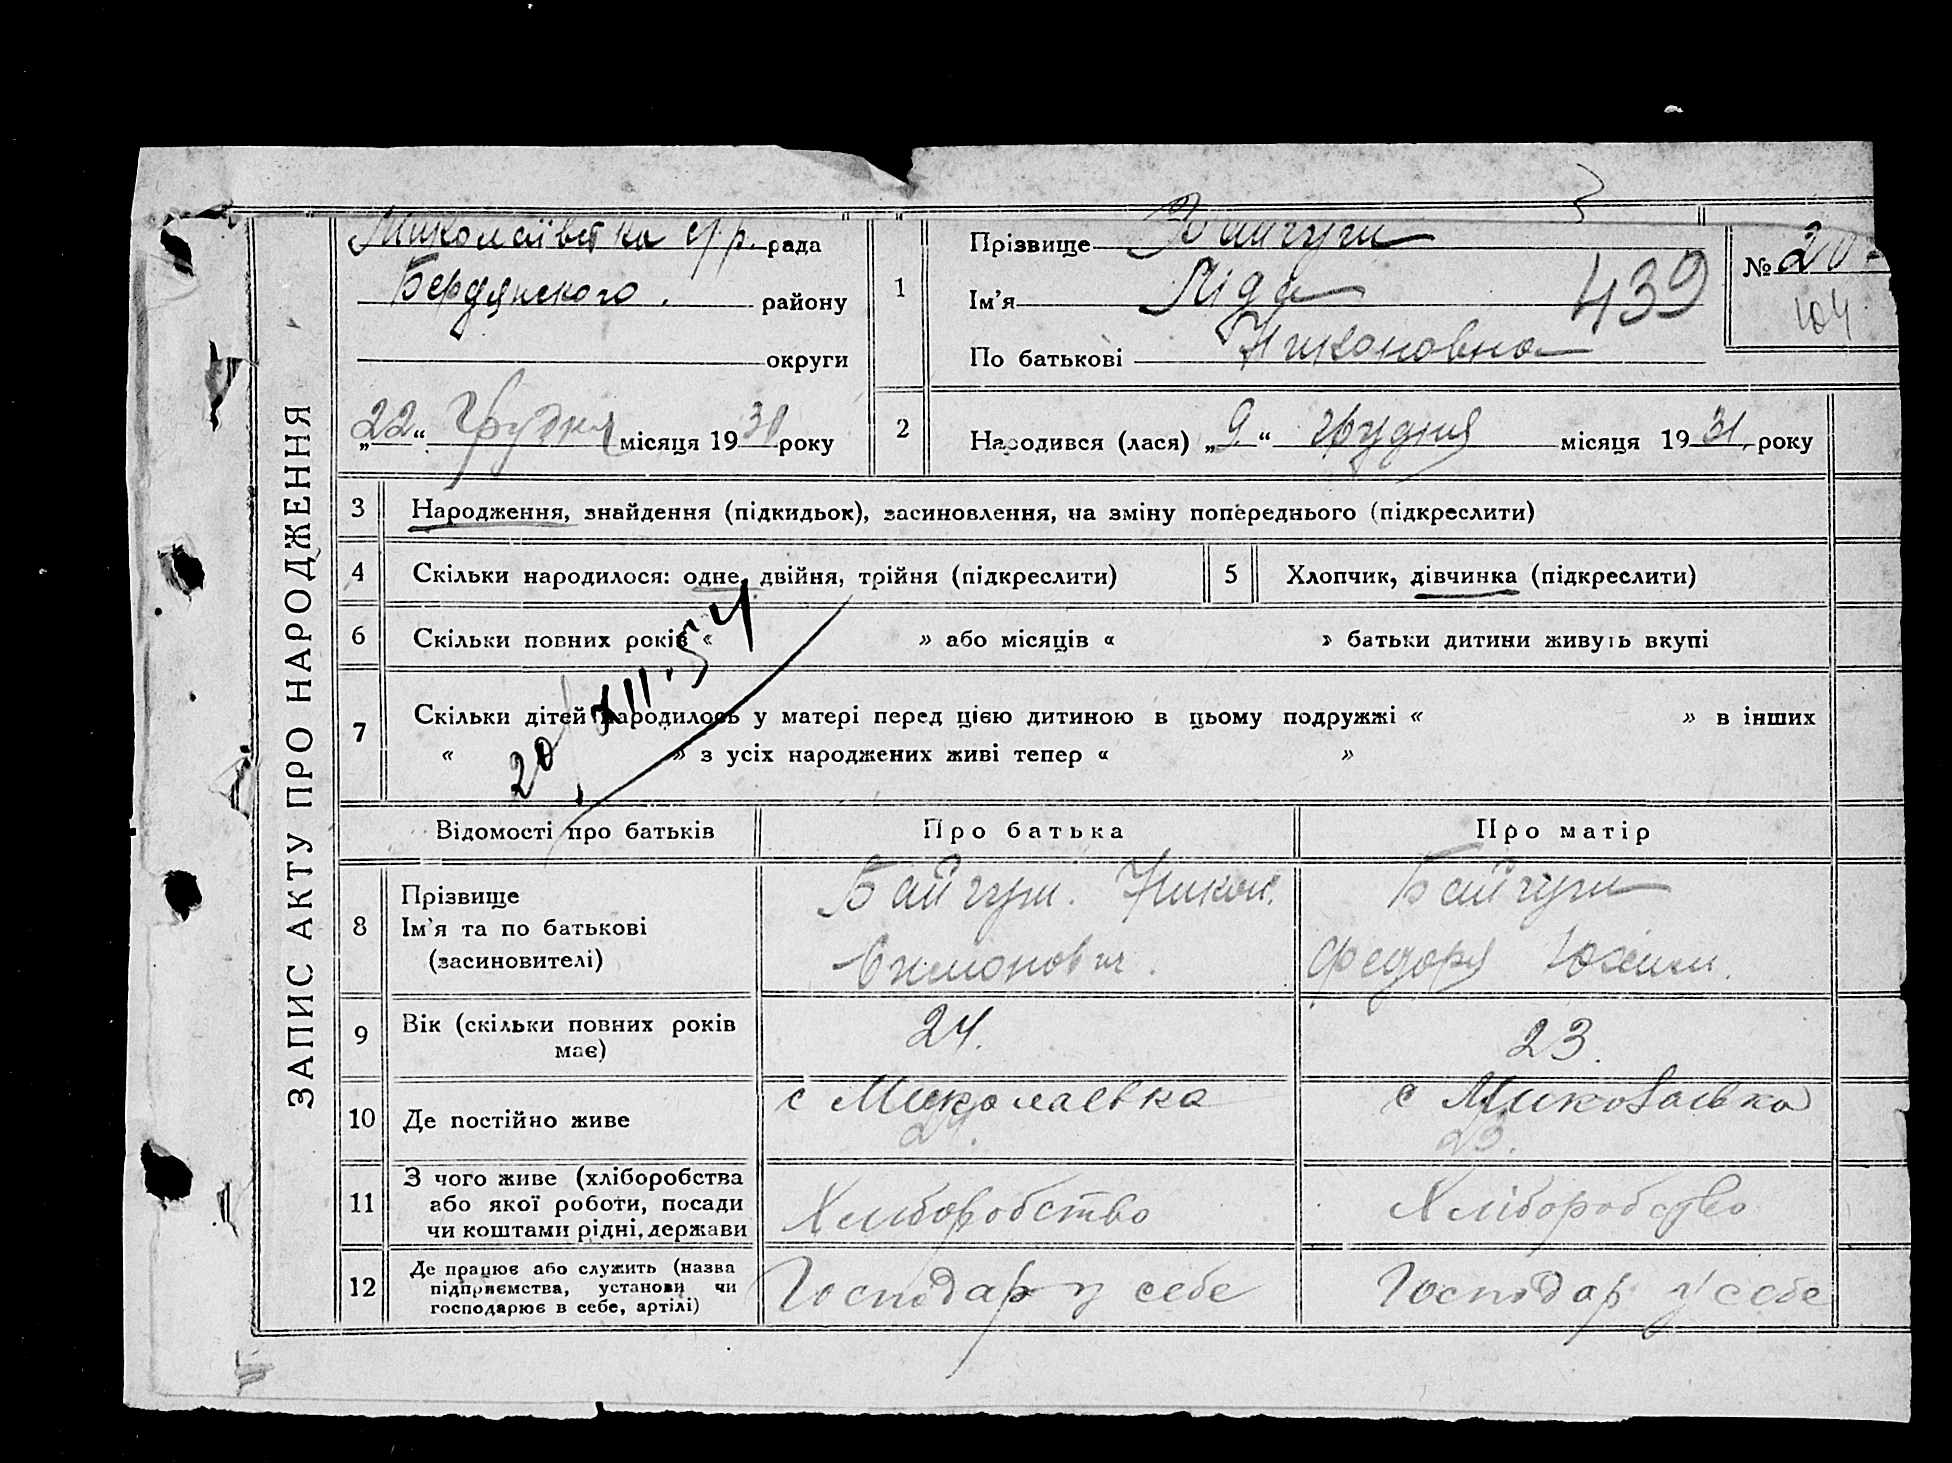 ЗАПИС АКТУ ПРО НАРОДЖЕННЯ
Миколаївська с/р. рада
Бердянского. району
округи
„22“ Грудня місяця 1930 року
1
Прізвище Байгуш
Ім'я Ліда
По батькові Никоновна
439
№ 20
104
2
Народився (лася) „9“ грудня місяця 1931 року
3 Народження, знайдення (підкидьок), засиновлення, на зміну попереднього (підкреслити)
4 Скільки народилося: одне, двійня, трійня (підкреслити)
5 Хлопчик, дівчинка (підкреслити)
6 Скільки повних років « » або місяців « » батьки дитини живуть вкупі
7 Скільки дітей народилось у матері перед цією дитиною в цьому подружжі « » в інших
« » з усіх народжених живі тепер « »
20/XII.54
Відомості про батьків Про батька Про матір
8
Прізвище
Ім'я та по батькові
(засновителі)
Байгуш. Никон.
Симонович.
Байгуш
Федора Юхим.
9 Вік (скільки повних років має)
24.
23.
10 Де постійно живе
с Миколаевка
24.
с Миколаевка
23.
11 З чого живе (хліборобства
або якої роботи, посади
чи коштами рідні, держави
Хлиборобство
Хліборобство
12 Де працює або служить (назва
підприємства, установи чи
господарює в себе, артілі)
Господар у себе
Господар у себе